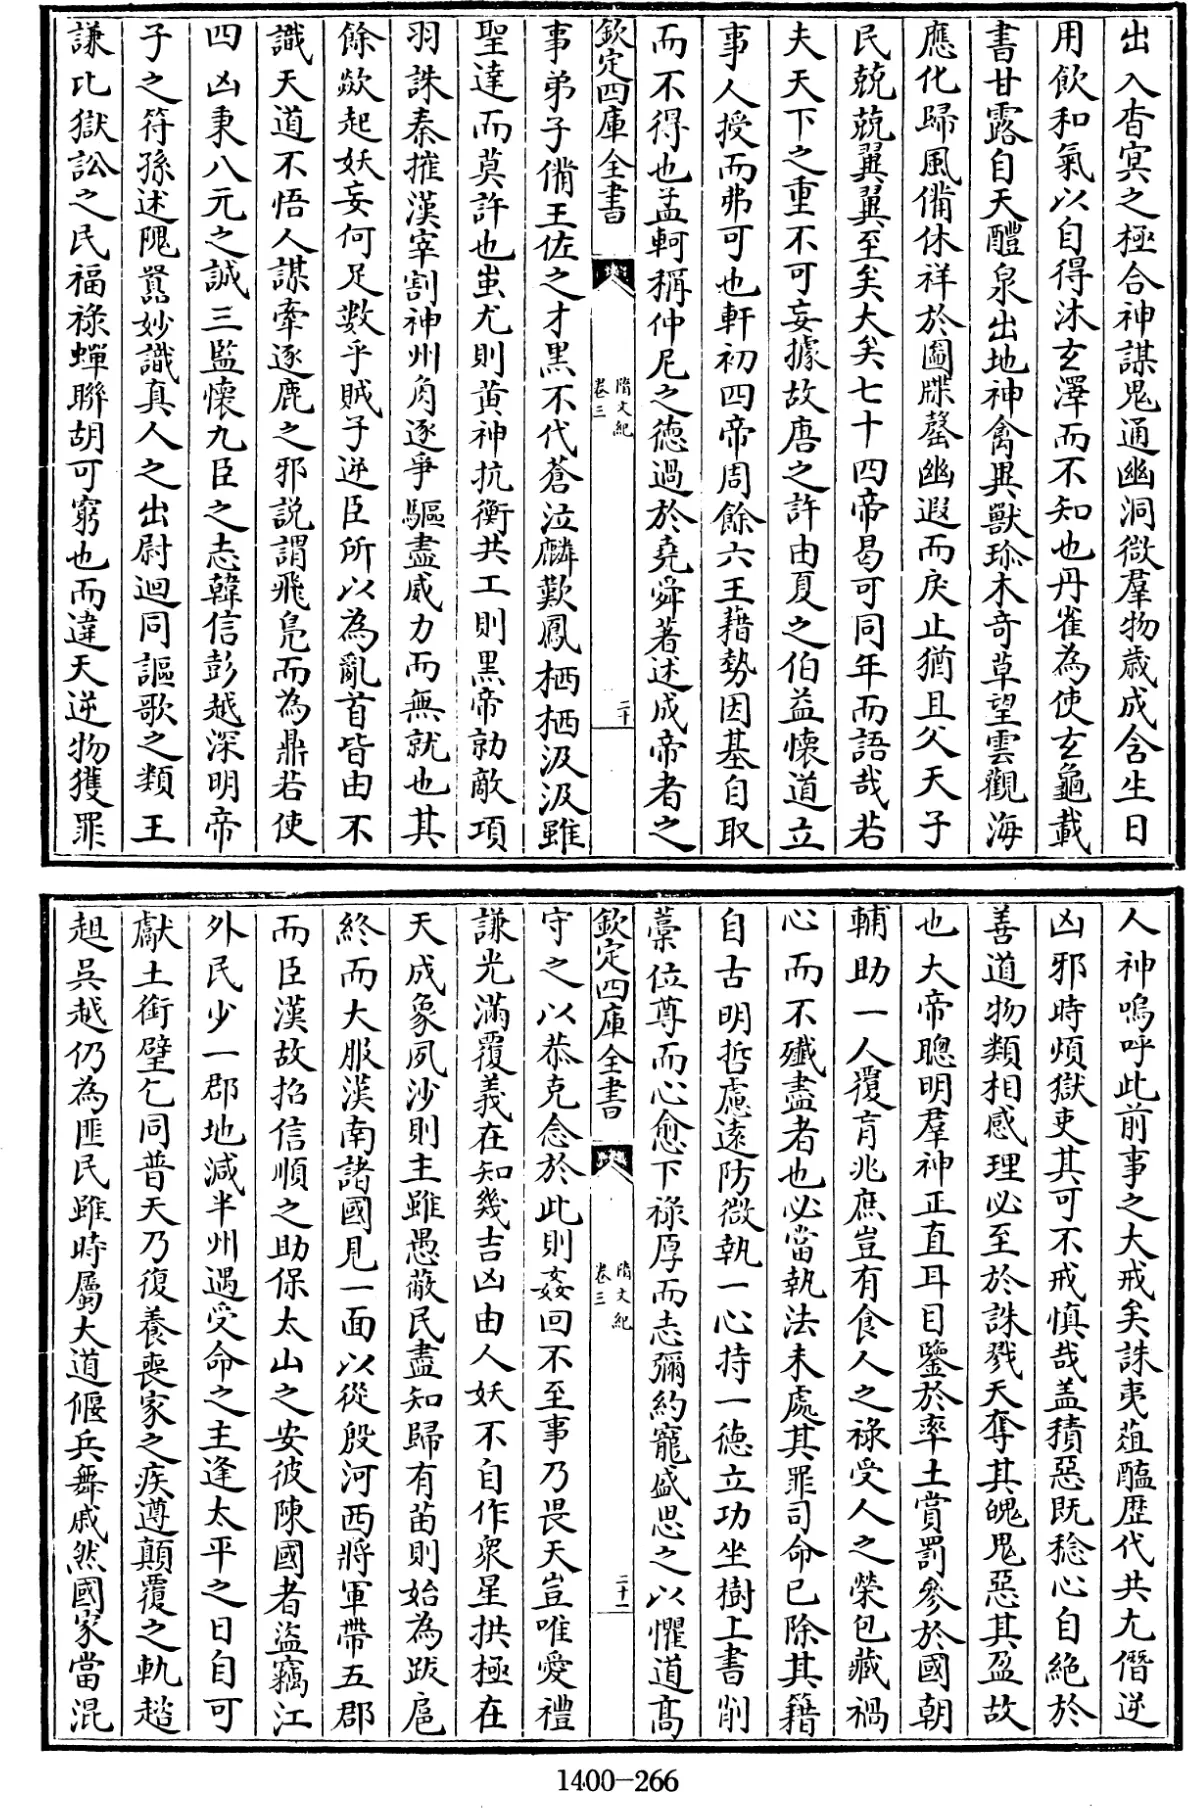 出入杳冥之極合神謀鬼通幽洞微羣物歳成含生日
用飲和氣以自得沐玄澤而不知也丹雀為使玄龜載
書甘露自天醴泉出地神禽異獸珍木竒草望雲觀海
應化歸風備休祥於圖牒罄幽遐而戾止猶且父天子
民兢兢翼翼至矣大矣七十四帝曷可同年而語哉若
夫天下之重不可妄據故唐之許由夏之伯益懐道立
事人授而弗可也軒初四帝周餘六王藉勢因基自取
而不得也孟軻稱仲尼之徳過於堯舜著述成帝者之
欽定四庫全書
隋文紀
卷三
二十
事弟子備王佐之才黒不代蒼泣麟歎鳳栖栖汲汲雖
聖達而莫許也蚩尤則黄神抗衡共工則黒帝勍敵項
羽誅秦摧漢宰割神州角逐爭驅盡威力而無就也其
餘歘起妖妄何足數乎賊子逆臣所以為亂首皆由不
識天道不悟人謀牽逐鹿之邪説謂飛鳬而為鼎若使
四凶秉八元之誠三監懐九臣之志韓信彭越深明帝
子之符孫述隗嚣妙識真人之出尉迥同謳歌之類王
謙比獄訟之民福祿蟬聯胡可窮也而違天逆物獲罪
人神嗚呼此前事之大戒矣誅夷葅醢歴代共尤僭逆
凶邪時煩獄吏其可不戒慎哉盖積惡既稔心自絶於
善道物類相感理必至於誅戮天奪其魄鬼惡其盈故
也大帝聰明羣神正直耳目鑒於率土賞罰參於國朝
輔助一人覆育兆庶豈有食人之祿受人之榮包藏禍
心而不殱盡者也必當執法未處其罪司命已除其籍
自古明哲慮遠防微執一心持一徳立功坐樹上書削
藳位尊而心愈下祿厚而志彌約寵盛思之以懼道髙
欽定四庫全書
隋文紀
卷三
二十一
守之以恭克念於此則姦回不至事乃畏天豈唯愛禮
謙光滿覆義在知幾吉凶由人妖不自作衆星拱極在
天成象夙沙則主雖愚蔽民盡知歸有苗則始為跋扈
終而大服漢南諸國見一面以從殷河西將軍帶五郡
而臣漢故招信順之助保太山之安彼陳國者盜竊江
外民少一郡地減半州遇受命之主逢太平之日自可
獻土銜璧乞同普天乃復養喪家之疾遵顛覆之軌趑
趄吳越仍為匪民雖時屬大道偃兵舞戚然國家當混
1400-266